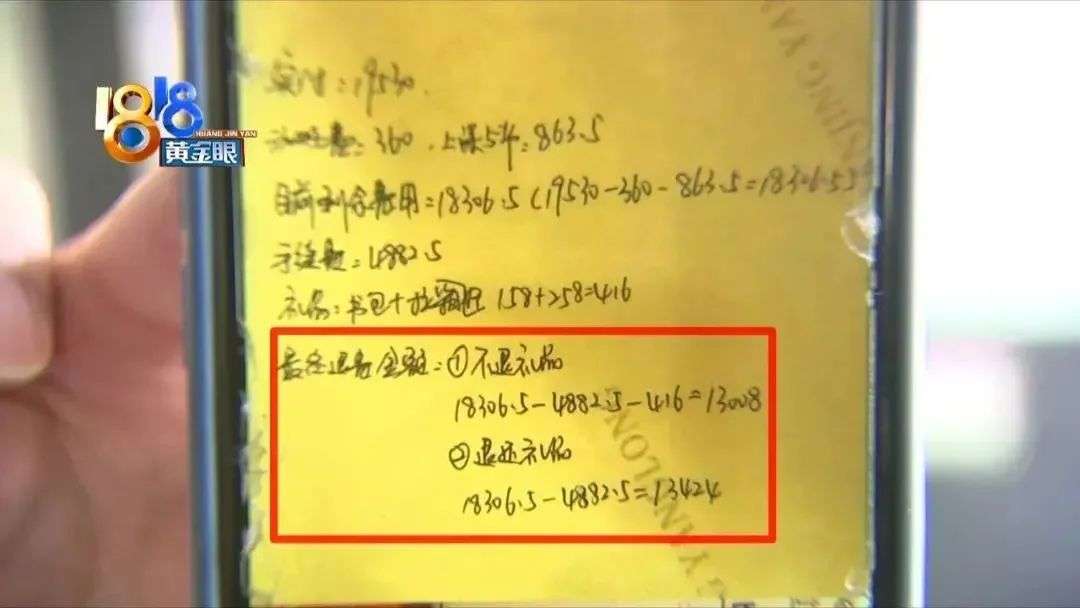 1818
HUANG JIN YAN
黄金眼
实付:19530.
360.上课5节:863.5
目前剩余费用=18306.5(19530-360-863.5=18306.5)
手续费=4882.5
礼品:书包+拉 158+258=416
最终退费金额:①不退礼品
18306.5-4882.5-416=13008
②退还礼品
18306.5-4882.5=13424